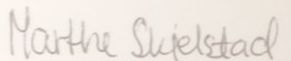 Marthe Skjelstad